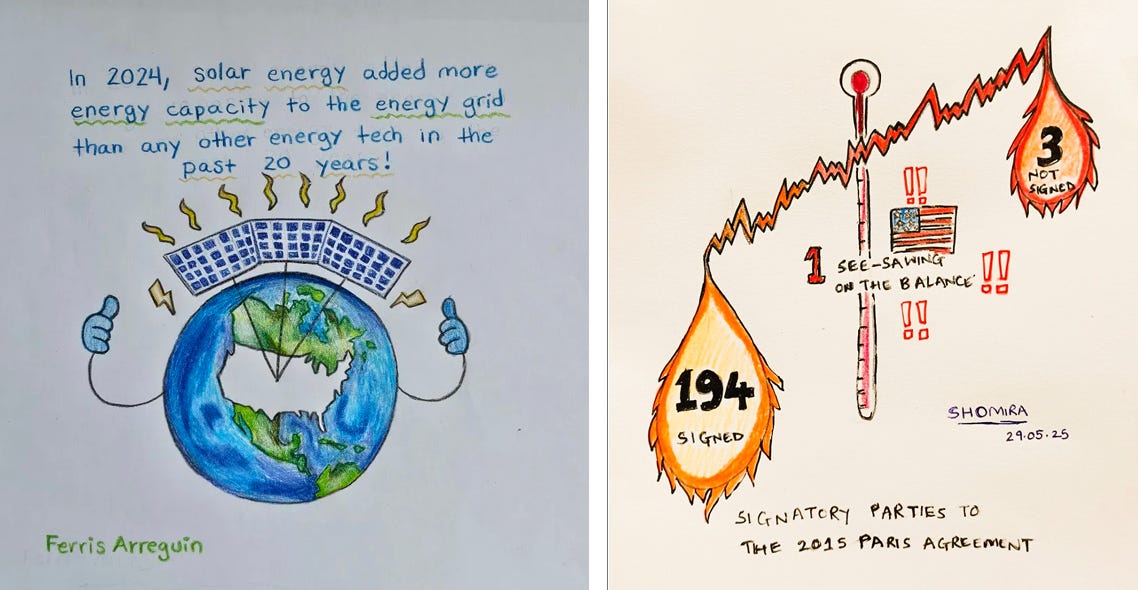 In 2024, solar energy added more
energy capacity to the energy grid
than any other energy tech in the
past 20 years!
Ferris Arreguin
3
NOT
SIGNED
!!
1 SEE-SAWING
ON THE BALANCE !!
!!
194
SIGNED
SHOMIRA
29.05.25
SIGNATORY PARTIES TO
THE 2015 PARIS AGREEMENT